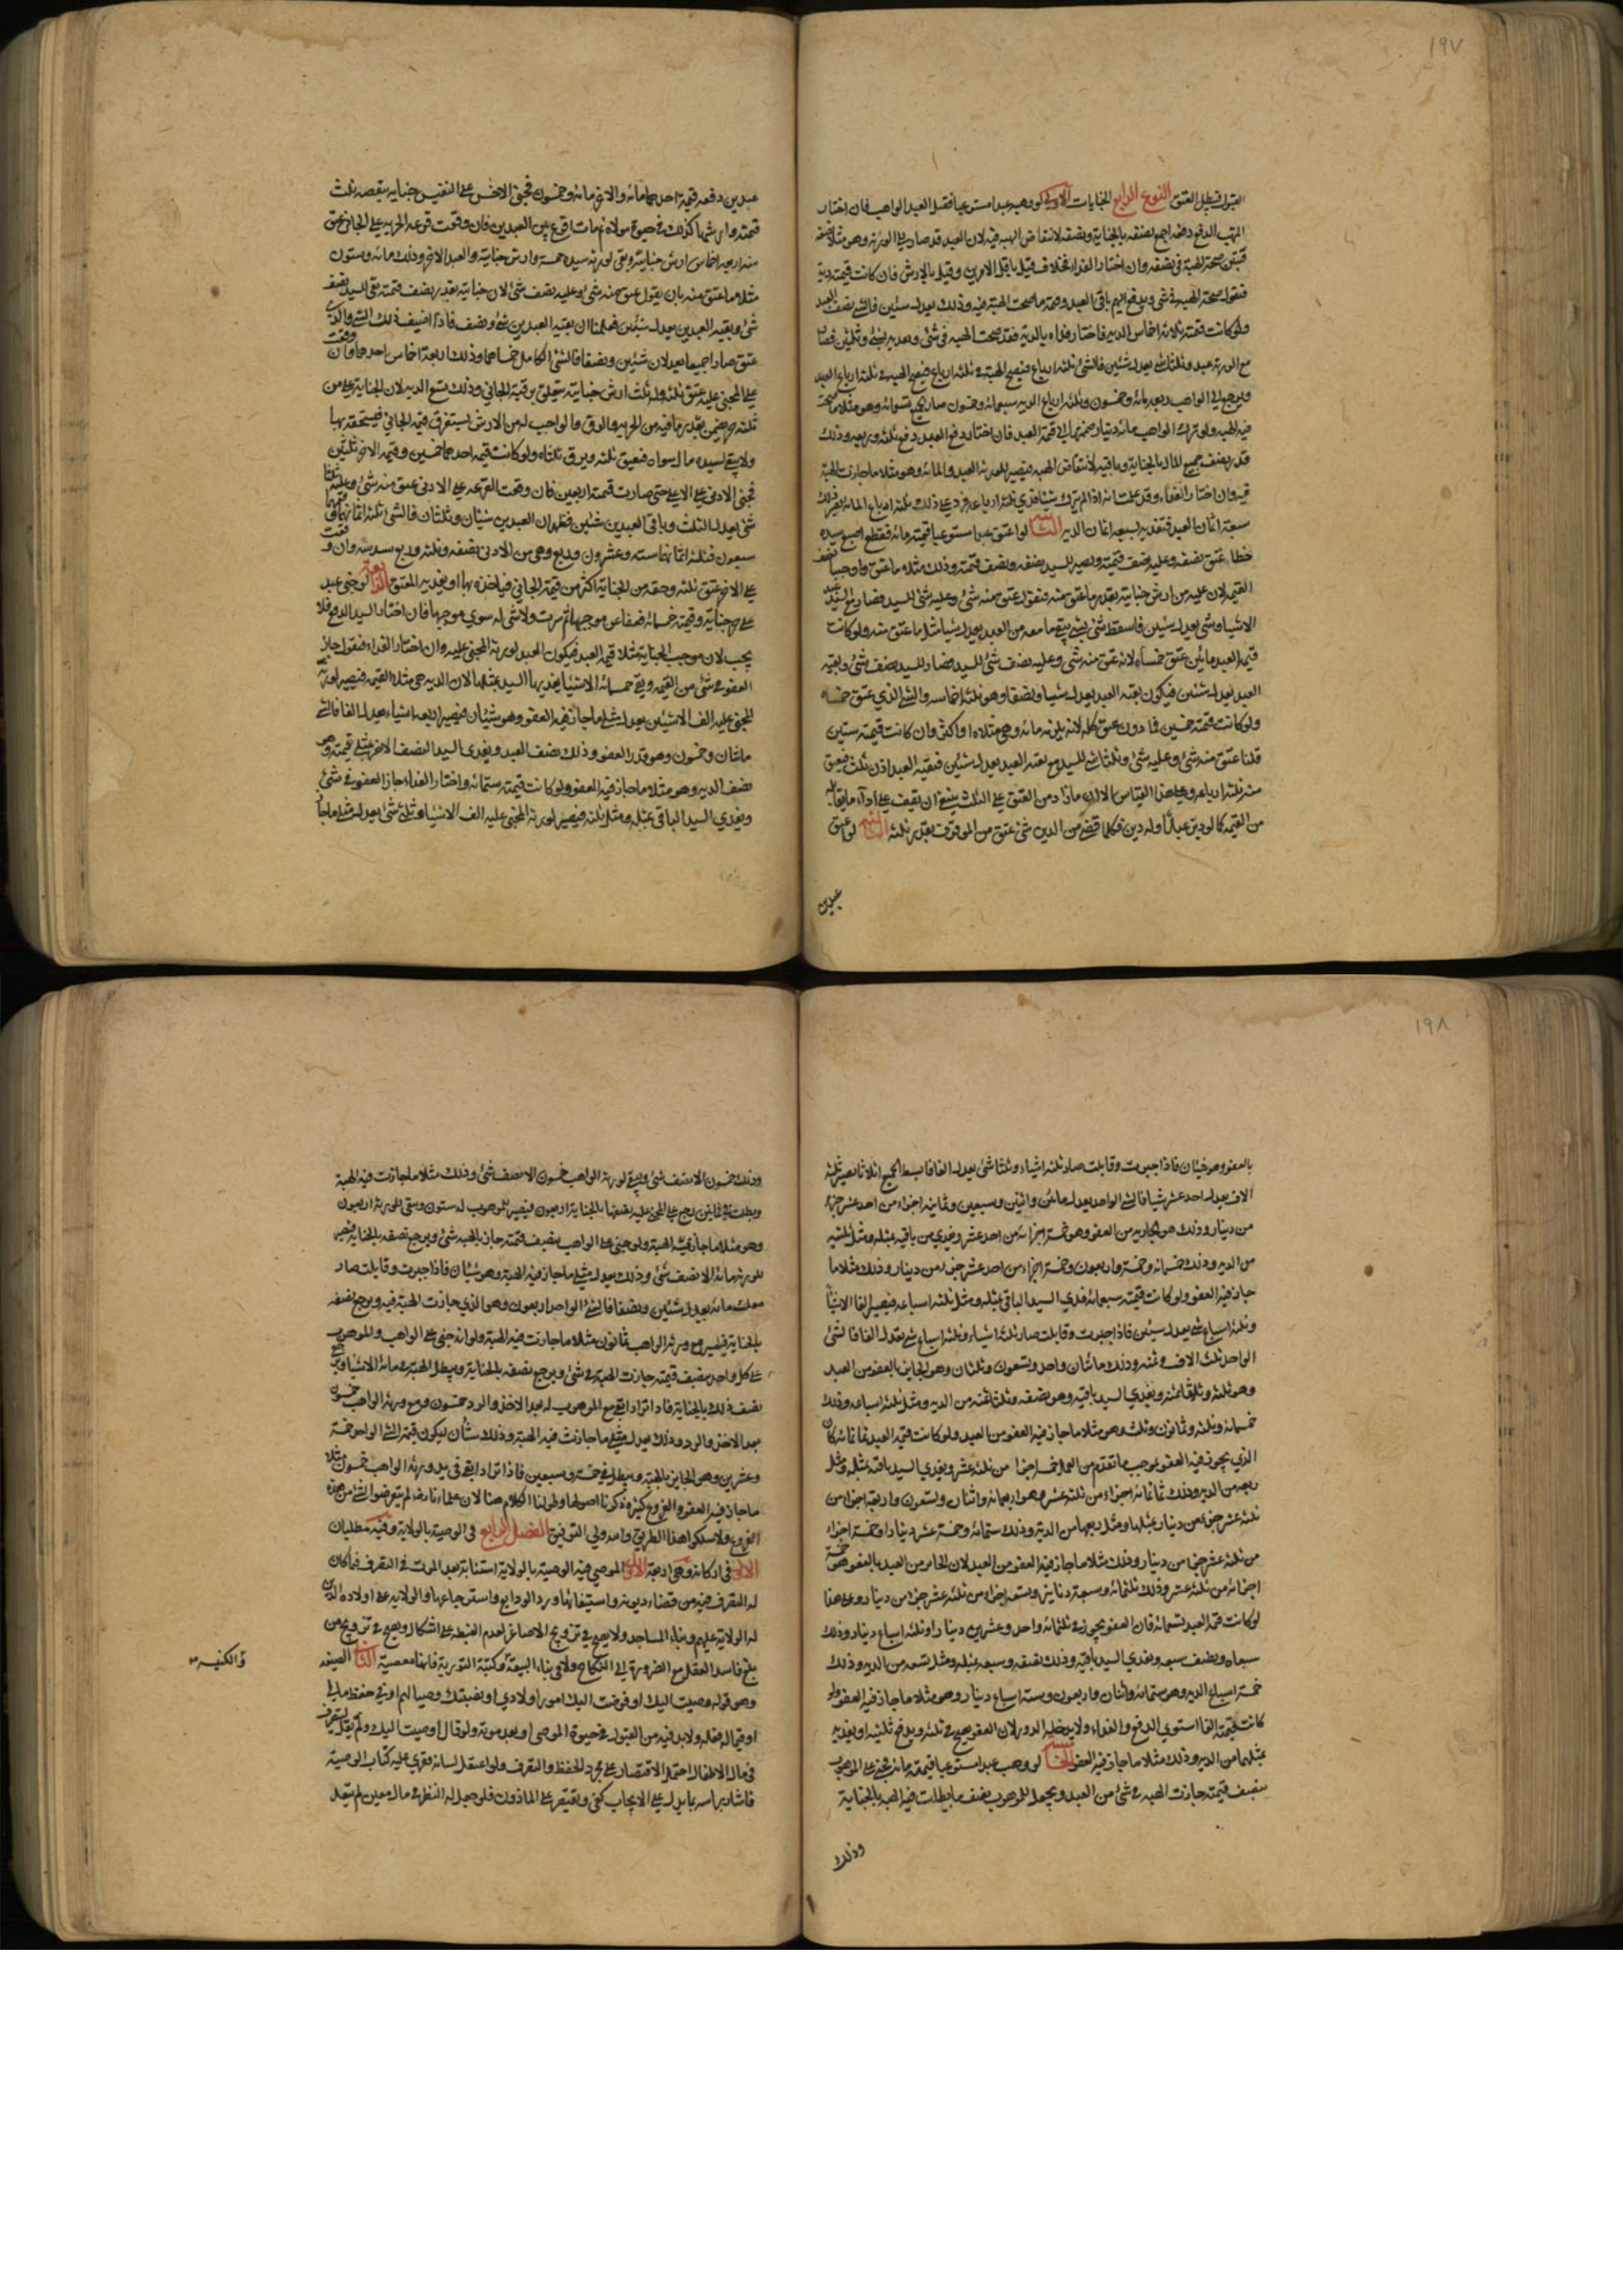 ١٩٧
القبول فبطل العتق النوع الرابع الجنايات الاول لو وهب عبدا مستوعبا فقتل العبد الواهب فان اختار
المتهب الدفع دفعه اجمع نصفه بالجناية ونصفه لانتقاض الهبة فيه لان العبد قد صار الى الورثة وهو مثلا نصفه
فتبين صحة الهبة في نصفه وان اختار الفداء فخلاف قيل باقل الامرين وقيل بالارش فان كانت قيمته دية
فنقول صحت الهبة في شئ ويدفع اليهم باقي العبد وقيمة ما صحت الهبة فيه وذلك يعدل شيئين فالشئ نصف العبد
ولو كانت قيمته ثلاثة اخماس الدية فاختار فداه بالدية فقد صحت الهبة في شئ ويفديه بشئ وثلثين فصار
مع الورثة عبد وثلثا شئ يعدل شيئين فالشئ ثلثة ارباع فتصح الهبة في ثلثة ارباع العبد
ويرجع الى الواهب ربعه مائة وخمسون وثلثة ارباع الدية سبعمائة وخمسون صار الجميع تسعمائة وهو مثلا ما صحت
فيه الهبة ولو ترك الواهب مائة دينار ضممتها الى قيمة العبد فان اختار دفع العبد دفع ثلثه وربعه وذلك
قدر نصف جميع المال بالجناية وباقيه لانتقاض الهبة فيصير للورثة العبد والمائة وهو مثلا ما جازت الهبة
فيه وان اختار الفداء وقد علمت انه اذا لم يترك شيئا فدى ثلثة ارباعه فزد على ذلك ثلثة ارباع المائة يصير ذلك
سبعة اثمان العبد فتفديه بسبعة اثمان الدية الثاني لو اعتق عبدا مستوعبا قيمته مائة فقطع اصبع سيده
خطا عتق نصفه وعليه نصف قيمته ويصير للسيد نصفه ونصف قيمته وذلك مثلا ما عتق واوجبنا نصف
القيمة لان عليه من ارش جنايته بقدر ما عتق منه فنقول عتق منه شئ وعليه شئ للسيد فصار مع السيد عبد
الا شيئا وشئ يعدل شيئين فاسقط شئ بشئ يبقى ما معه من العبد يعدل شيئا مثل ما عتق منه ولو كانت
قيمة العبد مائتين عتق خمساه لانه عتق منه شئ وعليه نصف شئ للسيد فصار للسيد نصف شئ وبقية
العبد يعدل شيئين فيكون بقية العبد يعدل شيئا ونصفا وهو ثلثة اخماسه والشئ الذي عتق خمساه
ولو كانت قيمته خمسين فما دون عتق كله لانه يلزمه مائة وهي مثلاه او اكثر وان كانت قيمته ستين
قلنا عتق منه شئ وعليه شئ وثلثا شئ للسيد مع بقية العبد يعدل شيئين فبقية العبد اذن ثلث فيعتق
منه ثلثة ارباعه وعلى هذا القياس الا ان ما زاد من العتق على الثلث ينبغي ان يقف على اداء ما يقابله
من القيمة كما لو دبر عبدا وله دين فكلما قضى من الدين شئ عتق من الموقوف بقدر ثلثه الثالث لو اعتق
عبدين
عبدين دفعة قيمة احدهما مائة والاخر مائة وخمسون فجنى الاخس على النفيس جناية ينقصه ثلث
قيمته وارشها كذلك في حيوة مولاه ثم مات اقرع بين العبدين فان وقعت قرعة الحرية على الجاني عتق
منه اربعة اخماسه وعليه ارش جنايته وبقي لورثة سيده خمسه وارش جنايته والعبد الاخر وذلك مائة وستون
مثلا ما عتق منه بان يقول عتق منه شئ وعليه نصف شئ لان جنايته بقدر نصف قيمته بقي للسيد نصف
شئ وبقية العبدين يعدل شيئين فعلمنا ان بقية العبدين شئ ونصف فاذا اضيف ذلك الشئ والذي
عتق صار اجميعا يعدلان شيئين ونصفا فالشئ الكامل خمساهما وذلك اربعة اخماس احدهما وان وقعت
على المجني عليه عتق ثلثه وله ثلث ارش جنايته يتعلق برقبة الجاني وذلك تسع الدية لان الجناية على من
ثلثه حر يضمن بقدر ما فيه من الحرية والرق والواجب له من الارش يستغرق قيمة الجاني فيستحقه بها
ولا يبقى لسيده مال سواه فيعتق ثلثه ويرق ثلثاه ولو كانت قيمة احدهما خمسين وقيمة الاخر ثلثين
فجنى الادنى على الاعلى حتى صارت قيمته اربعين فان وقعت القرعة على الادنى عتق منه شئ وعليه ثلثا
شئ يعدل الثلث وباقي العبدين شيئين فظهر ان العبدين شيئان وثلثان فالشئ ثلثة اثمانهما وقيمتهما
سبعون فثلثة اثمانها ستة وعشرون وربع وهي من الادنى نصفه وثلثه وربع سدسه وان وقعت
على الاخر عتق ثلثه وحقه من الجناية اكثر من قيمة الجاني فياخذه بها او يفديه المعتق الرابع لو جنى عبد
على حر جناية وقيمته خمسمائة فعفا عن موجبها ثم سرت ولا شئ له سوى موجبها فان اختار السيد الدفع فلا
يجب لان موجب الجناية مثلا قيمة العبد فيكون العبد لورثة المجني عليه وان اختار الفداء فنقول جاز
العفو في شئ من القيمة وبقي خمسمائة الا شيئا يفديها السيد بمثلها لان الدية هي مثلا القيمة فيصير لورثة
المجني عليه الف الا شيئين يعدل مثلي ما جاز فيه العفو وهو شيئان فيصير اربعة اشياء يعدل الفا فالشئ
مائتان وخمسون وهو قدر العفو وذلك نصف العبد ويفدي السيد النصف الاخر بمثلي قيمته وهو
نصف الدية وهو مثلا ما جاز فيه العفو ولو كانت قيمته ستمائة واختار الفداء جاز العفو في شئ
ويفدي السيد الباقي بمثله ومثل ثلثيه فيصير لورثة المجني عليه الف الا شيئا وثلثي شئ يعدل مثلي ما جاز
١٩٨
بالعفو وهو شيئان فاذا جبرت وقابلت صار ثلثة اشياء وثلثا شئ يعدل الفا فابسط الجميع اثلاثا يصير ثلثة
الاف يعدل احد عشر شيئا فالشئ الواحد يعدل مائتين واثنين وسبعين وثمانية اجزاء من احد عشر جزءا
من دينار وذلك هو الجايز من العفو وهو خمسة اجزائه من احد عشر ويفدي من باقيه بمثله ومثل ثلثيه
من الدية وذلك خمسمائة وخمسة واربعون وخمسة اجزاء من احد عشر جزءا من دينار وذلك مثلا ما
جاز فيه العفو ولو كانت قيمته سبعمائة فدى السيد الباقي بمثله ومثل ثلثة اسباعه فيصير الفا الا شيئا
وثلثة اسباع شئ يعدل شيئين فاذا جبرت وقابلت صار ثلثة اشياء وثلثة اسباع شئ يعدل الفا فالشئ
الواحد ثلث الاف وثمنه وذلك مائتان واحد وتسعون وثلثان وهو الجايز بالعفو من العبد
وهو ثلثه وثلثا ثمنه ويفدي السيد باقيه وهو نصفه وثلث ثمنه من الدية ومثل ثلثة اسباعه وذلك
خمسمائة وثلثة وثمانون وثلث وهو مثلا ما جاز فيه العفو من العبد ولو كانت قيمة العبد ثمانمائة كان
الذي يجوز فيه العفو بموجب ما تقدم من العمل خمسة اجزاء من ثلثة عشر ويفدي السيد باقيه بمثله ومثل
ربعه من الدية وذلك ثمانية اجزاء من ثلثة عشر وهو اربعمائة واثنان وتسعون واربعة اجزاء من
ثلثة عشر جزءا من دينار بمثلها ومثل ربعها من الدية وذلك ستمائة وخمسة عشر دينارا وخمسة اجزاء
من ثلثة عشر جزءا من دينار وذلك مثلا ما جاز فيه العفو من العبد لان الجايز من العبد بالعفو خمسة
اجزائه من ثلثة عشر وذلك ثلثمائة وسبعة دنانير وتسعة اجزاء من ثلثة عشر جزءا من دينار وعلى هذا
لو كانت قيمة العبد تسعمائة فان العفو يجوز في ثلثمائة واحد وعشرين دينارا وثلثة اسباع دينار وذلك
سبعاه ونصف سبعه ويفدي السيد باقيه وذلك نصفه وسبعه بمثله ومثل تسعه من الدية وذلك
خمسة اسباع الدية وهو ستمائة واثنان واربعون وستة اسباع دينار وهو مثلا ما جاز فيه العفو ولو
كانت قيمته الفا استوى الدفع والفداء ولا يدخله الدور لان العفو يصح في ثلثه ويدفع ثلثيه او يفديه
بمثلهما من الدية وذلك مثلا ما جاز فيه العفو الخامس لو وهب عبدا مستوعبا قيمته مائة فجنى على الموهوب
بنصف قيمته جازت الهبة في شئ من العبد ويحصل للموهوب نصف ما بطلت فيه الهبة بالجناية
وذلك
وذلك خمسون الا نصف شئ ويبقى لورثة الواهب خمسون الا نصف شئ وذلك مثلا ما جازت فيه الهبة
وبطلت في ثمانين يرجع على المجني عليه نصفها بالجناية اربعون فيصير للموهوب له ستون ويبقى للورثة اربعون
وهو مثلا ما جاز فيه الهبة ولو جنى على الواهب بنصف قيمته جاز بالهبة شئ ويرجع نصفه بالجناية فيصير
للورثة مائة الا نصف شئ وذلك يعدل مثلي ما جاز فيه الهبة وهو شيئان فاذا جبرت وقابلت صار
معك مائة يعدل شيئين ونصفا فالشئ الواحد اربعون وهو الذي جازت الهبة فيه ويرجع نصفه
بالجناية فيصير مع ورثة الواهب ثمانون مثلا ما جازت فيه الهبة ولو انه جنى على الواهب والموهوب
على كل واحد بنصف قيمته جازت الهبة في شئ ويرجع نصفه بالجناية ويبطل الهبة في مائة الا شيئا يرجع
نصف ذلك بالجناية فاذا ترادا بقي مع الموهوب له بعد الاخذ والرد خمسون ومع ورثة الواهب خمسون
بعد الاخذ والرد وذلك يعدل مثلي ما جازت فيه الهبة وذلك شيئان ليكون قيمة الشئ الواحد خمسة
وعشرين وهو الجايز بالهبة ويبطل في خمسة وسبعين فاذا ترادا بقي في يد ورثة الواهب خمسون مثلا
ما جاز فيه العفو والفروع كثيرة ذكرنا اصولها وطولنا الكلام هنا لان علماءنا رض لم يتعرضوا لشئ من هذه
الفروع ولا سلكوا هذا الطريق والله ولي التوفيق الفصل الرابع في الوصية بالولاية وفيه مطلبان
الاول في اركانه وهي اربعة الاول الموصي فيه الوصية بالولاية استنابة بعد الموت في التصرف فيما كان
له التصرف فيه من قضاء ديونه واستيفائها ورد الودايع واسترجاعها والولاية على اولاده الذين
له الولاية عليهم وبناء المساجد ولا يصح في تزويج الاصاغر لعدم الغبطة على اشكال ويصح في تزويج من
بلغ فاسد العقل مع الضرورة الى النكاح ولا في بناء البيعة وكتبة التورية فانها معصية الثاني الصيغة
وهو قوله وصيت اليك او فوضت اليك امور اولادي او نصبتك وصيا لهم او في حفظ مالي
او فيما له فعله ولا بد فيه من القبول في حيوة الموصي او بعد موته ولو قال اوصيت اليك ولم يقل لتتصرف
في مال الاطفال احتمل الاقتصار على مجرد الحفظ والتصرف ولو اعتقل لسانه فقرئ عليه كتاب الوصية
فاشار براسه بما يدل على الايجاب كفى ويقتصر على الماذون فلو جعل له النظر في مال معين لم يتعد
والكنيسة